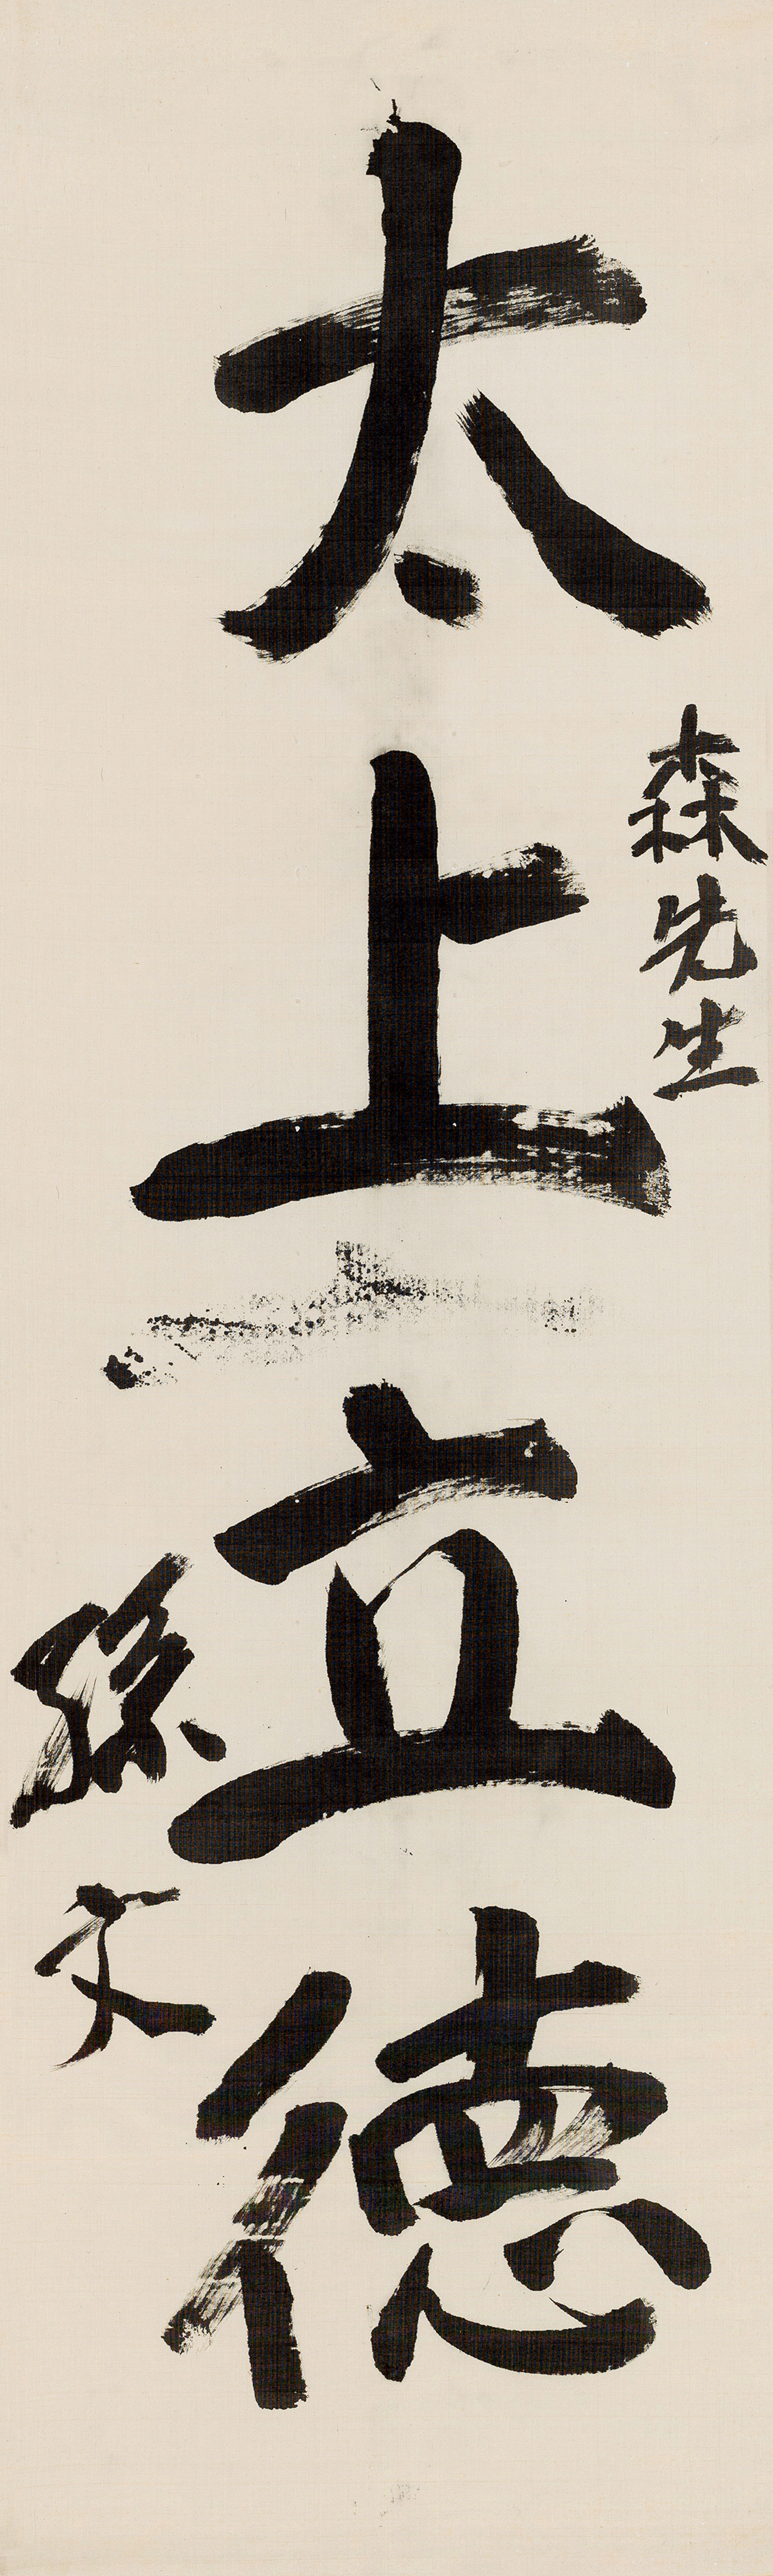 森先生
太上立德
孫文